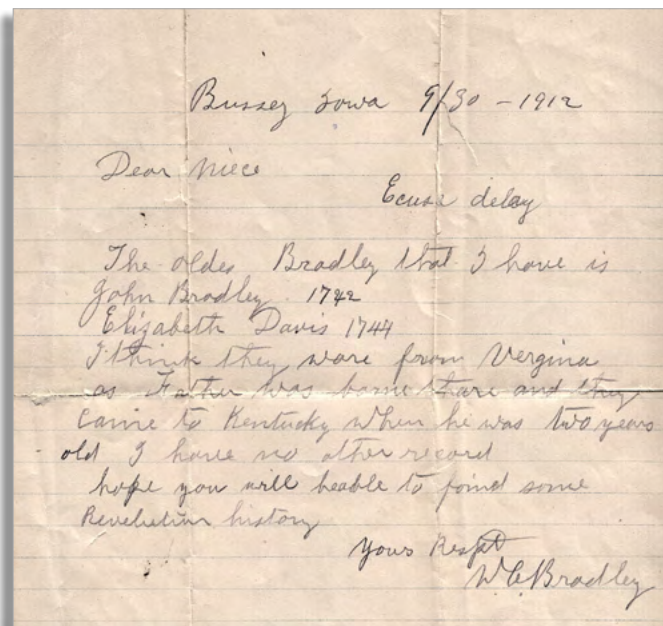 Bussey Iowa 9/30 - 1912
Dear Niece
Ecuse delay
The oldes Bradley that I have is
John Bradley 1742
Elizabeth Davis 1744
I think they ware from Vergina
as Father was borne thare and they
came to Kentucky when he was two years
old I have no other record
hope you will beable to find some
Revelution history
Yours Respt
W C Bradley